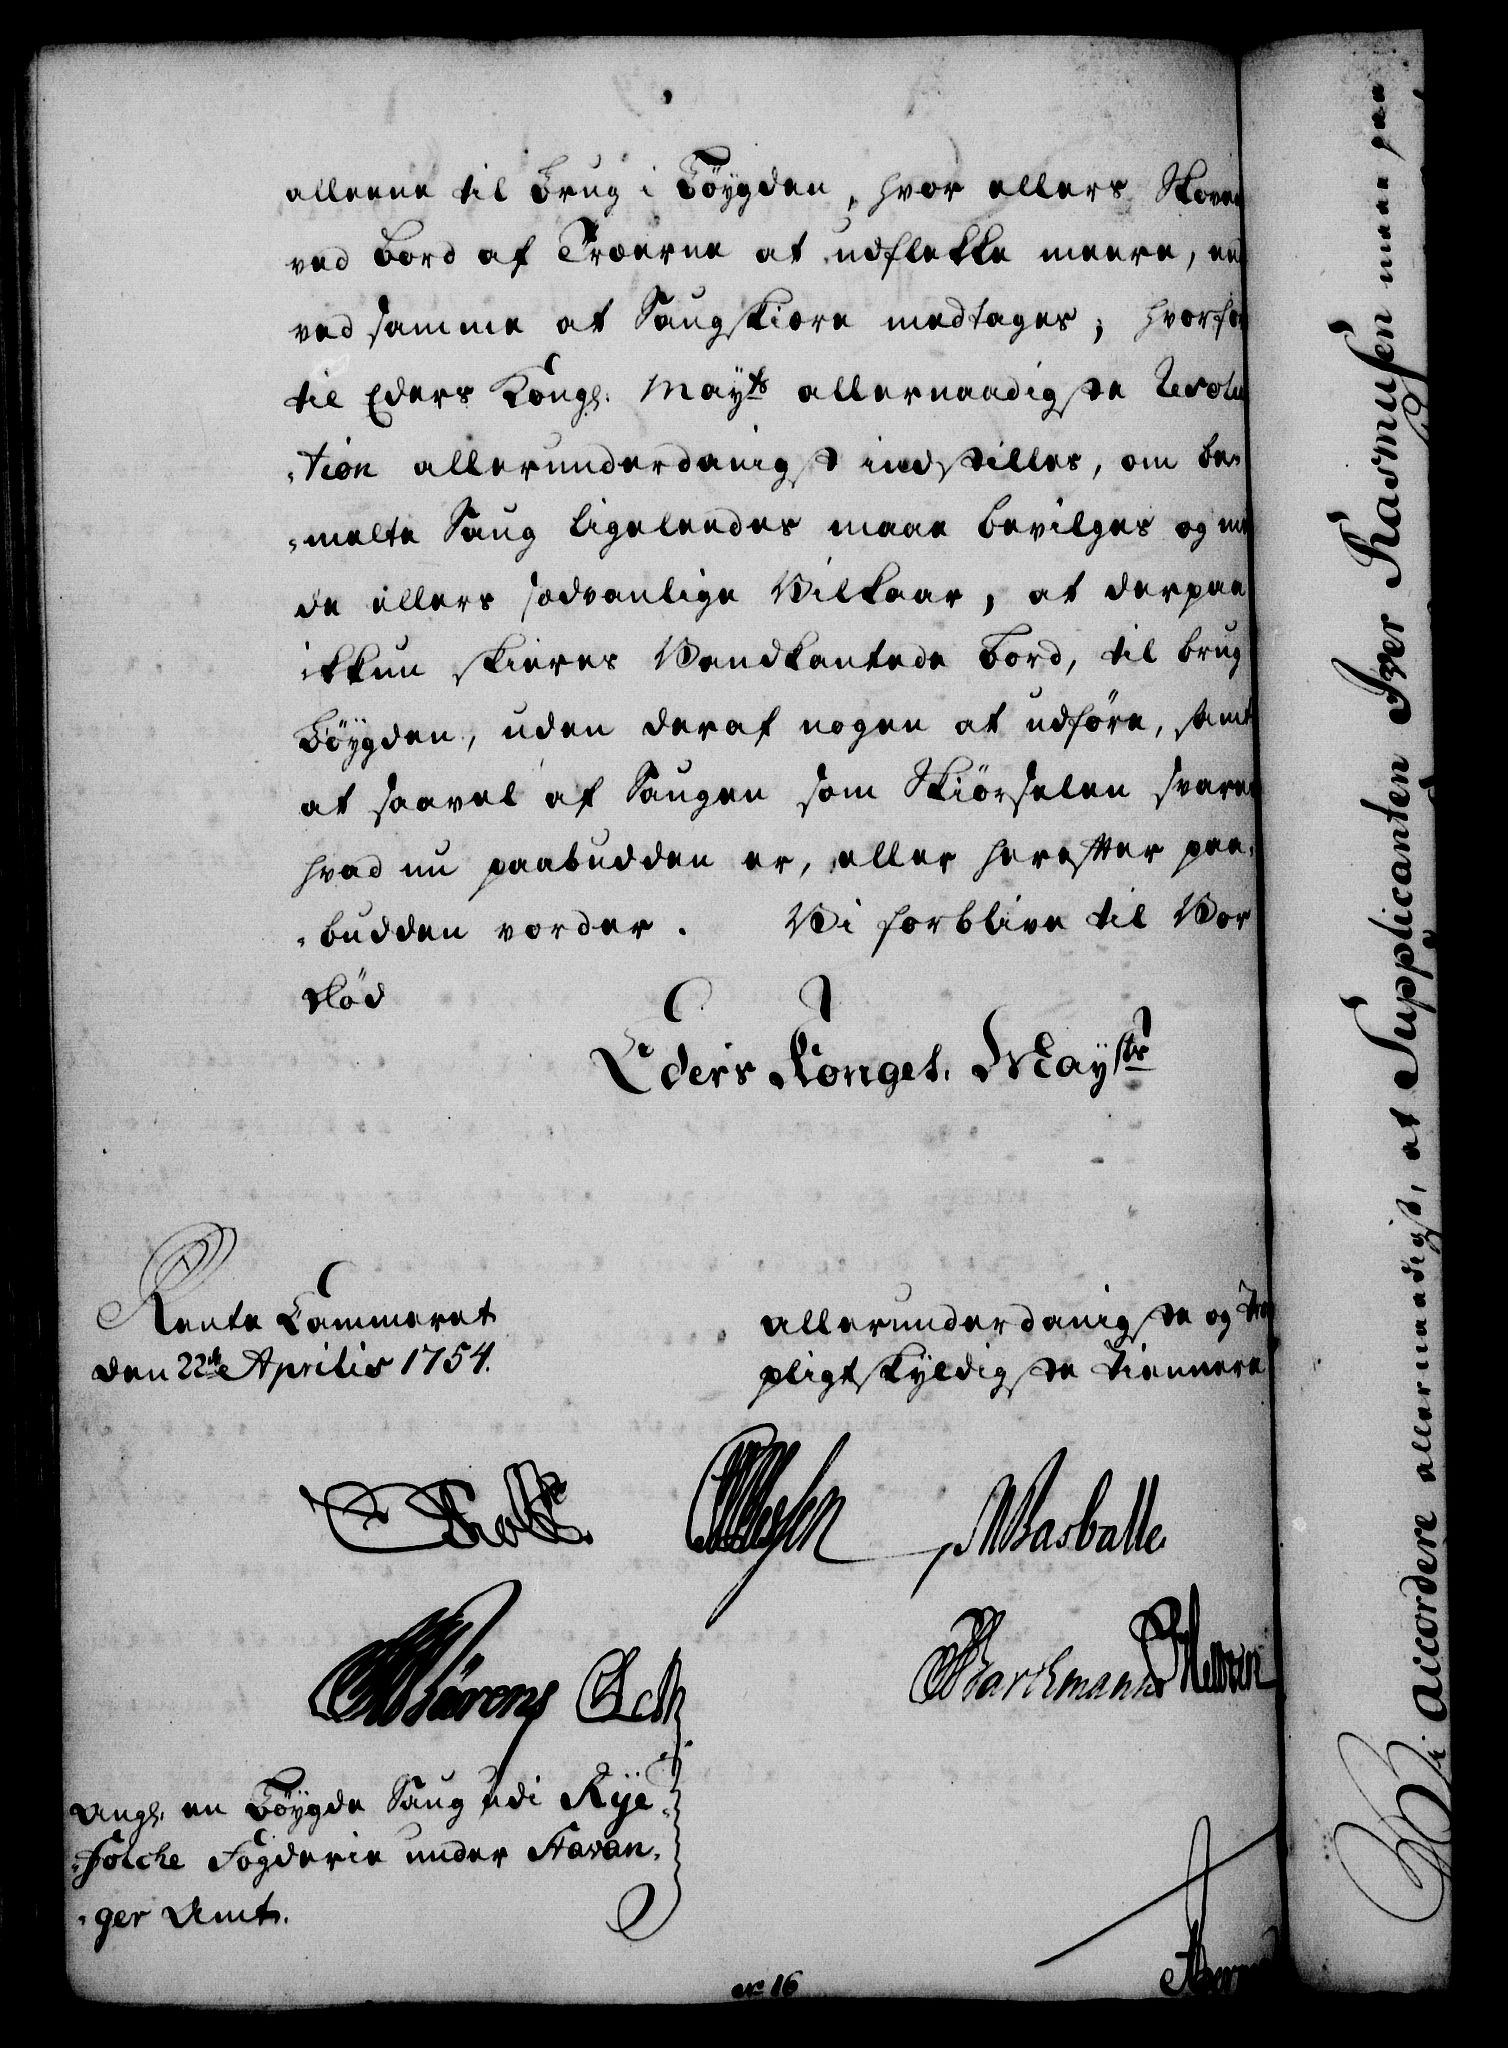 alleene til Brug i Böygden, hvor ellers Skoven
ved Bord af Træerne at udflekke meere, end
ved samme at Saugskiære medtages; hvorfor
til Eders Kongl. Mayts allernaadigste Resolu
-tion allerunderdanigst indstilles, om be-
-melte Saug ligeleedes maae bevilges og
de ellers sædvanlige Vilkaar, at derpaa
ikkun skieres Vandkantede Bord, til brug
Böygden, uden deraf nogen at udföre, samt
at saavel af Saugen som Skiörselen svares
hvad nu paabudden er, eller herefter paa-
-budden vorder. Vi forblive til Vor
Död
Eders Kongel. Maysts
Rente Cammeret
den 22de Aprilis 1754.
allerunderdanigste og
pligtskyldigste tiennere
Wasballe
Bärens
Barchmann
Angl. en Böygde Saug udi Rye-
-fölche Fogderie under Stavan-
-ger Amt.
No 16
Vi accordere allernaadigst, at Supplicanten Iver Rasmusen maae paa